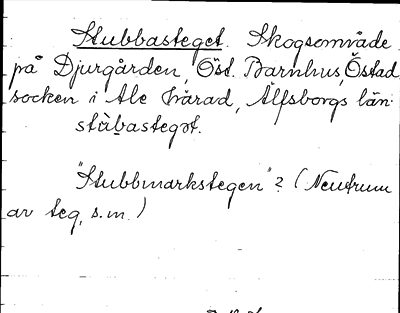 Stubbasteget. Skogsområde
på Djurgården, Öst. Barnhus, Östad
socken i Ale härad, Älfsborgs län.
stùbastegət.
"Stubbmarkstegen"? (Neutrum
av teg, s.m.)